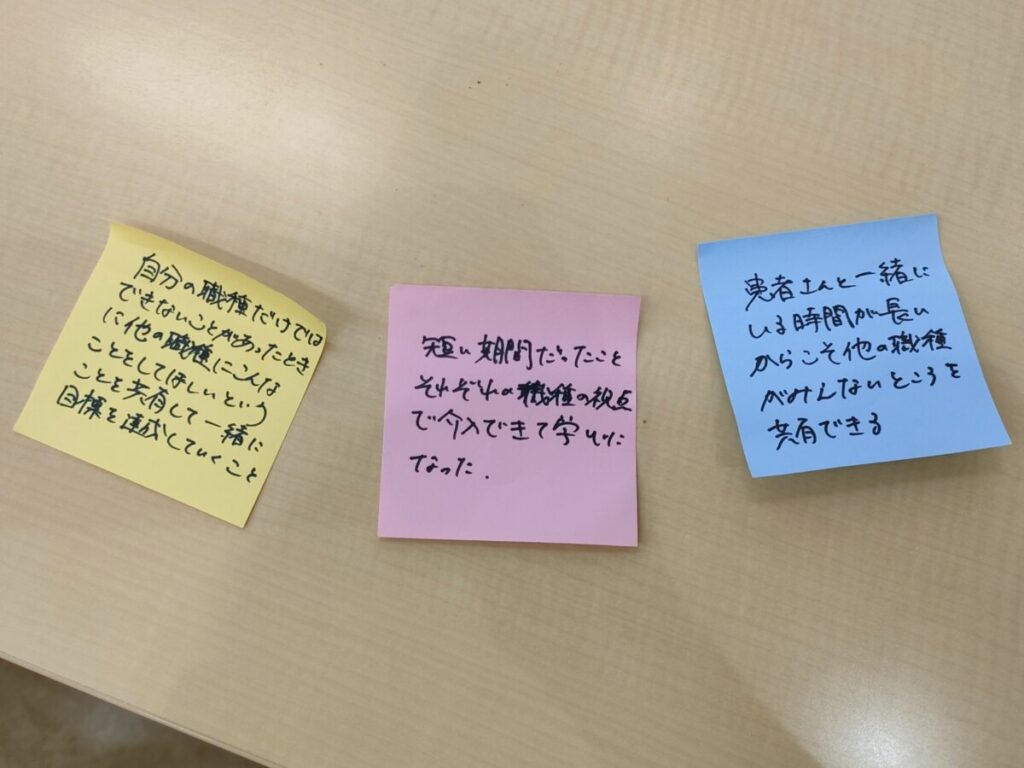 自分の職種だけでは
できないことがあったとき
に他の職種にこんな
ことをしてほしいという
ことを共有して一緒に
目標を達成していくこと
短い期間だったこと
それぞれの職種の視点
で介入できて学びに
なった.
患者さんと一緒に
いる時間が長い
からこそ他の職種
がみんないところを
共有できる